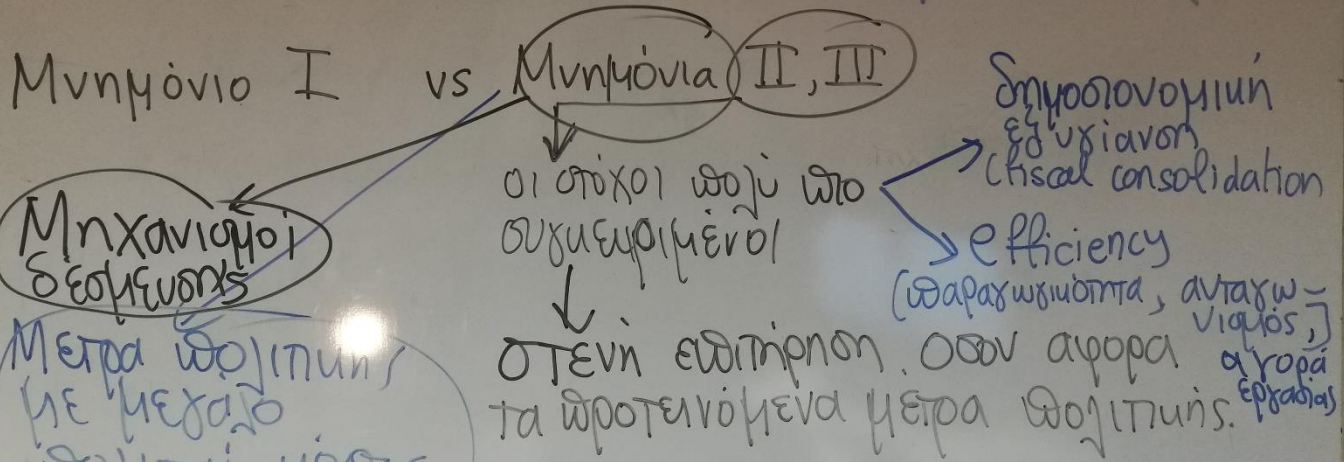 Μνημόνιο I vs Μνημόνια II, III
Μηχανισμοί
δεσμευσης
Μετρα πολιτικής
με μεγάλο
οι στόχοι πολύ πιο
συγκεκριμένοι
στενή επιτήρηση οσον αφορα
τα προτεινόμενα μετρα πολιτικής.
δημοσιονομική
εξυγίανση
(fiscal consolidation
efficiency
(παραγωγικότητα, ανταγω-
νισμός,
αγορά
εργασίας